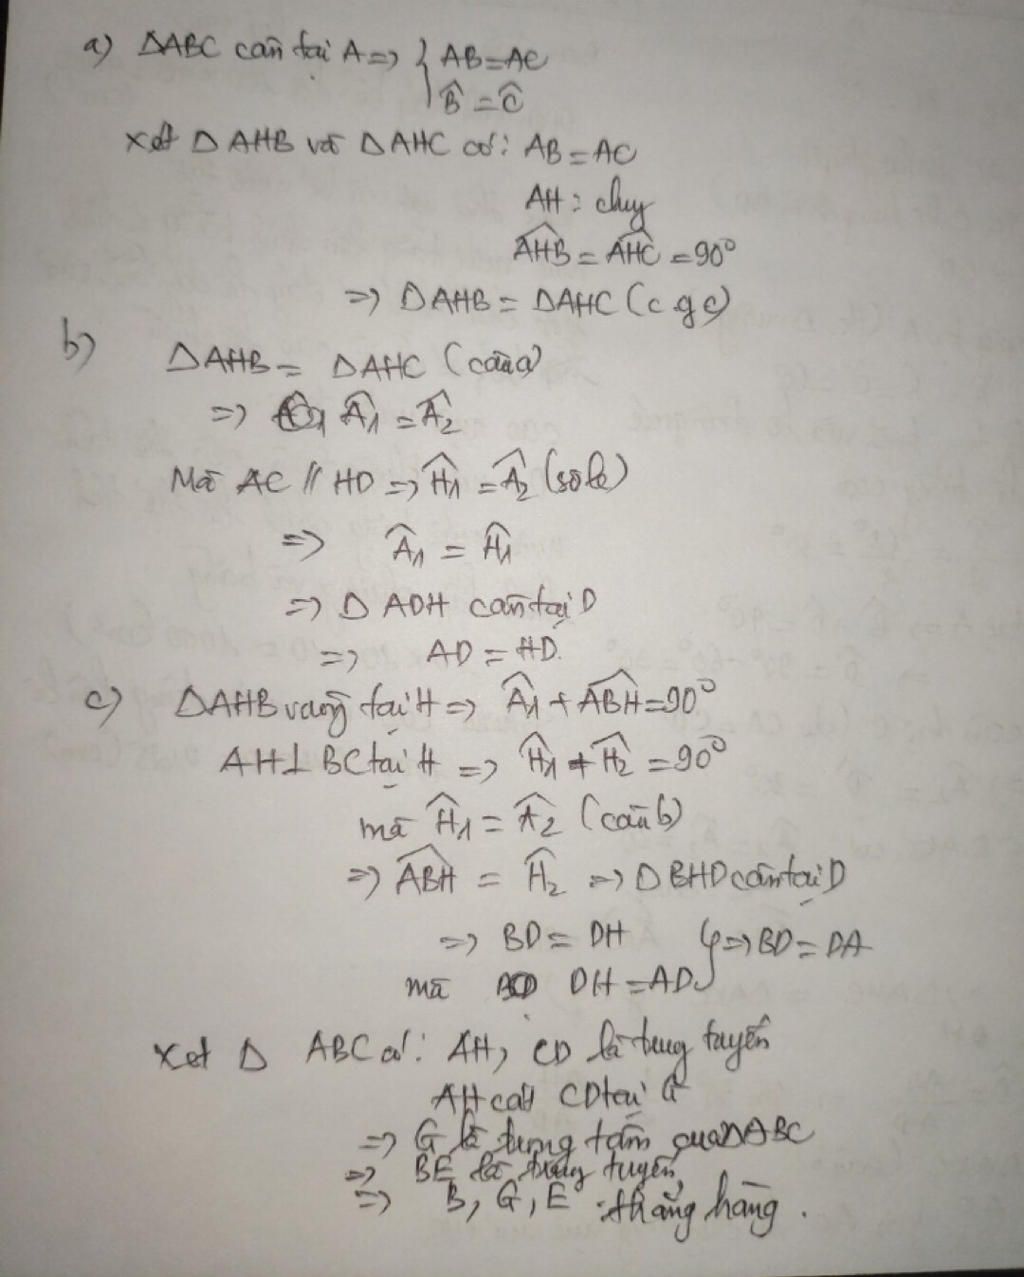 a) ΔABC cân tại A => { AB=AC
B̂ = Ĉ
Xét Δ AHB và Δ AHC có: AB = AC
AH: chung
AHB = AHC = 90°
=> ΔAHB = ΔAHC (c.g.c)
b) ΔAHB = ΔAHC (câu a)
=> Â1 = Â2
Mà AC // HD => Ĥ1 = Â2 (so le)
=> Â1 = Ĥ1
=> Δ ADH cân tại D
=> AD = HD.
c) ΔAHB vuông tại H => Â1 + ABH = 90°
AH⊥BC tại H => Ĥ1 + Ĥ2 = 90°
mà Ĥ1 = Â2 (câu b)
=> ABH = Ĥ2 => Δ BHD cân tại D
=> BD = DH } => BD = DA
mà DH = AD
Xét Δ ABC có: AH, CD là trung tuyến
AH cắt CD tại G
=> G là trọng tâm của ΔABC
=> BE là trung tuyến
=> B, G, E thẳng hàng.